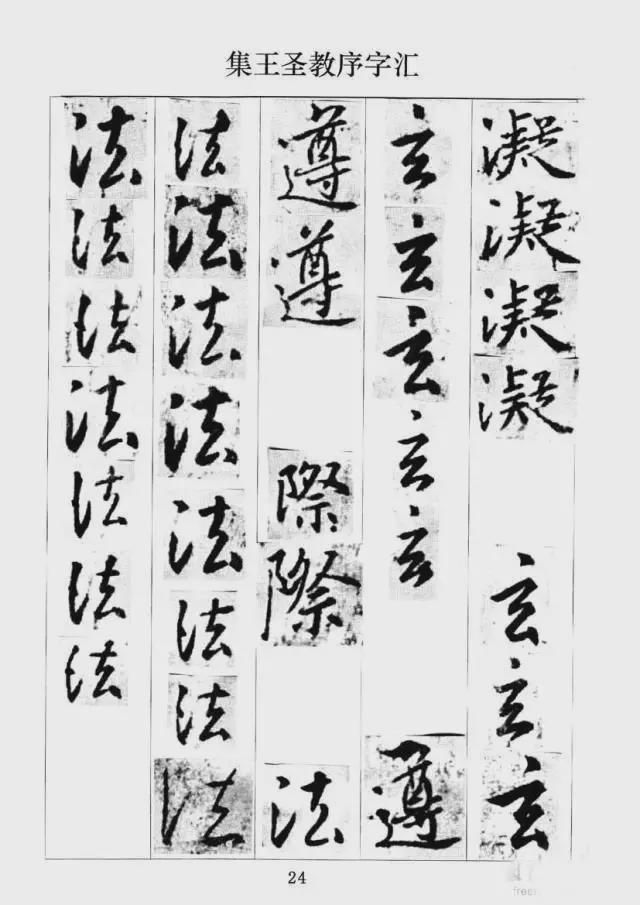 集王圣教序字汇
凝凝凝凝玄玄玄
玄玄玄玄玄遵
遵遵際際法
法法法法法法法法
法法法法法法法
24